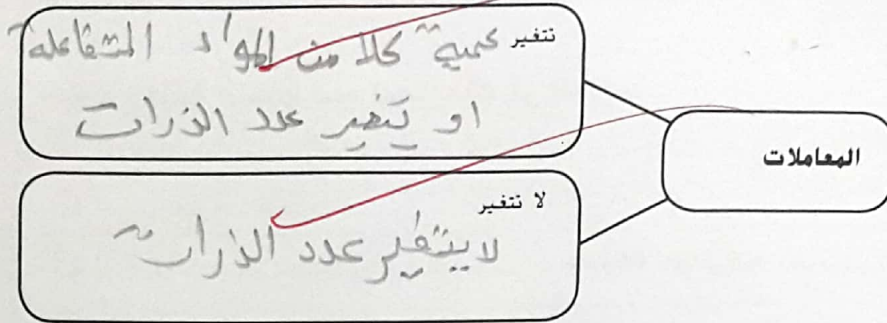 تتغير
كمية كلا من المواد المتفاعلة
او يتغير عدد الذرات
المعاملات
لا تتغير
لا يتغير عدد الذرات